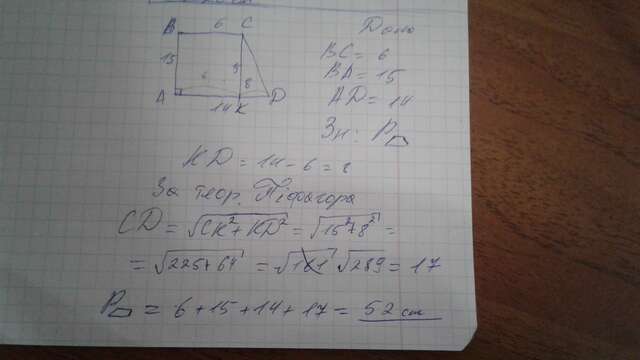 B 6 C
15
9
6 8
A 14 K D
Дано
BC = 6
BA = 15
AD = 14
Зн: P▱
KD = 14 - 6 = 8
За теор. Піфагора
CD = √CK²+KD² = √15²+8² =
= √225+64 = √289 = 17
P▱ = 6+15+14+17 = 52 cm